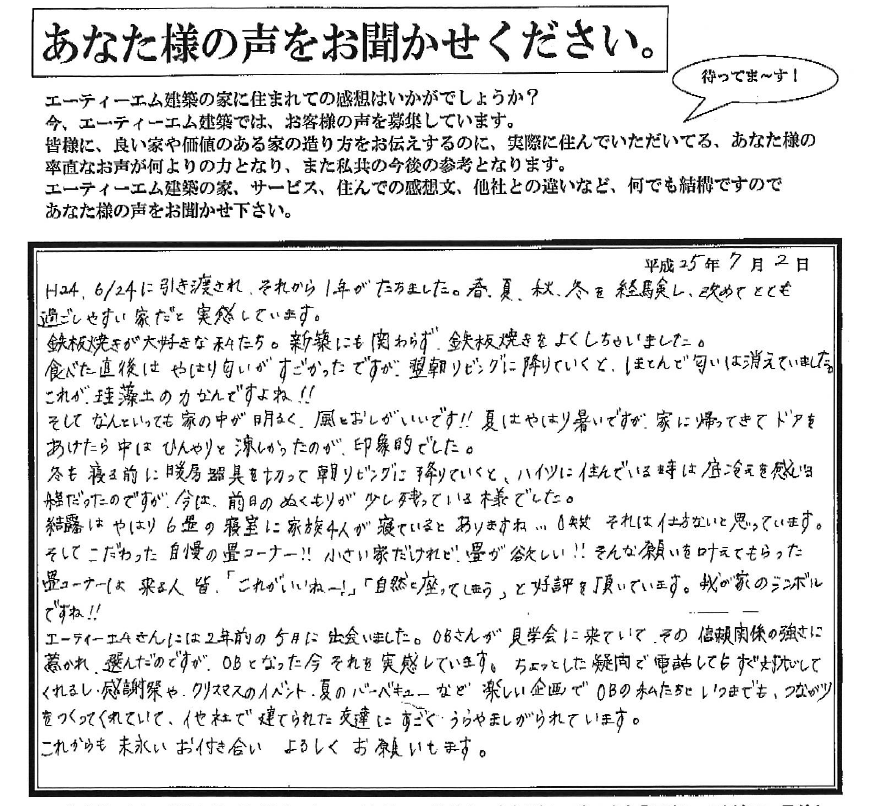 あなた様の声をお聞かせください。
待ってま～す！
エーティーエム建築の家に住まれての感想はいかがでしょうか？
今、エーティーエム建築では、お客様の声を募集しています。
皆様に、良い家や価値のある家の造り方をお伝えするのに、実際に住んでいただいてる、あなた様の
率直なお声が何よりの力となり、また私共の今後の参考となります。
エーティーエム建築の家、サービス、住んでの感想文、他社との違いなど、何でも結構ですので
あなた様の声をお聞かせ下さい。
平成25年7月2日
H24. 6/24に引き渡され、それから1年がたちました。春、夏、秋、冬を経験し、改めてとても
過ごしやすい家だと実感しています。
鉄板焼きが大好きな私たち。新築にも関わらず、鉄板焼きをよくしちゃいました。
食べた直後はやはり匂いがすごかったですが、翌朝リビングに降りていくと、ほとんど匂いは消えていました。
これが、珪藻土の力なんですよね!!
そしてなんといっても家の中が明るく、風とおしがいいです!! 夏はやはり暑いですが、家に帰ってきてドアを
あけたら中はひんやりと涼しかったのが、印象的でした。
冬も寝る前に暖房器具を切って朝リビングに降りていくと、ハイツに住んでいる時は底冷えを感じる
程だったのですが、今は、前日のぬくもりが少し残っている様でした。
結露はやはり6畳の寝室に家族4人が寝ているとありますね… それは仕方ないと思っています。
そしてこだわった自慢の畳コーナー!! 小さい家だけれど、畳が欲しい!! そんな願いを叶えてもらった
畳コーナーは来る人皆、「これがいいねー!」「自然と座ってしまう」と好評を頂いています。我が家のシンボル
ですね!!
エーティーエムさんには2年前の5月に出会いました。OBさんが見学会に来ていて、その信頼関係の強さに
惹かれ、選んだのですが、OBとなった今それを実感しています。ちょっとした疑問で電話してもすぐ対応して
くれるし、感謝祭や、クリスマスのイベント、夏のバーベキューなど楽しい企画でOBの私たちといつまでも、つながり
をつくってくれていて、他社で建てられた友達にすごくうらやましがられています。
これからも末永いお付き合いよろしくお願いします。